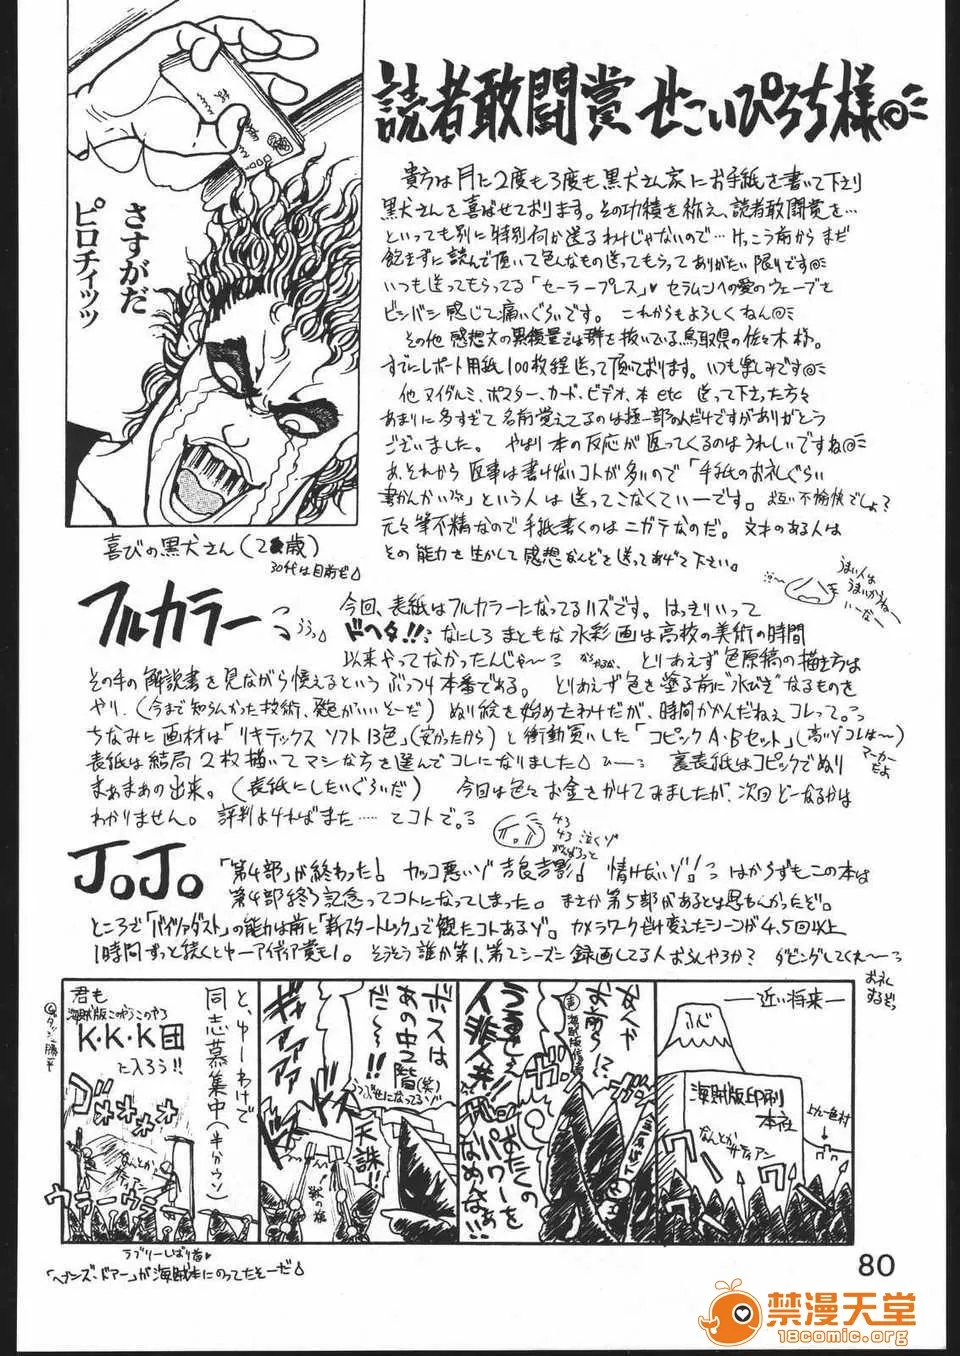 さすがだ
ピロチィッッ
喜びの黒犬さん(2 歳)
30代は目前だ
読者敢闘賞 せこいぴろち様
貴方は月に2度も3度も黒犬さん家にお手紙を書いて下さり
黒犬さんを喜ばせております。その功績を称え、読者敢闘賞を…
といっても別に特別何か送るわけじゃないので…けっこう前からまだ
飽きずに読んで頂いて色んなもの送ってもらってありがたい限りです
いつも送ってもらってる「セーラープレス」♥セラムンへの愛のウェーブを
ビンバン感じて痛いぐらいです。これからもよろしくねん
その他感想文の 量では群を抜いている鳥取県の佐々木様。
すでにレポート用紙100枚程送って頂いております。いつも楽しみです
他ヌイグルミ、ポスター、カード、ビデオ、本etc 送って下さった方々
あまりに多すぎて名前覚えてるのは極一部なんだけですがありがとう
ございました。やはり本の反応が返ってくるのはうれしいですね
あ、それから返事は書けないコトが多いので「手紙のお礼ぐらい
書かんかい」という人は送ってこなくていーです。お互い不愉快でしょ?
元々筆不精なので手紙書くのはニガテなのだ。文才のある人は
その能力を生かして感想なんぞを送ってあげて下さい。
うまい人は
うまいからねー
いーなー
フルカラー
今回、表紙はフルカラーになってるハズです。はっきりいって
ドヘタ!!なにしろまともな水彩画は高校の美術の時間
以来やってなかったんじゃ〜 とりあえず色原稿の描き方は
その手の解説書を見ながら憶えるというぶっつけ本番である。とりあえず色を塗る前に"水びき"なるものを
やり、(今まで知らんかった技術、発色がいいそーだ)ぬり絵を始めたわけだが、時間かかんだねぇコレって。
ちなみに画材は「リキテックス ソフト13色」(安かったから)と衝動買いした「コピックA・Bセット」(高いゾコレは〜)
マーカー
だよ
表紙は結局2枚描いてマシな方を選んでコレになりました 裏表紙はコピックでぬり
まぁまぁの出来。(表紙にしたいぐらいだ) 今回は色々お金をかけてみましたが、次回どーなるかは
わかりません。評判よければまた……てコトで。
JoJo
「第4部」が終わった!カッコ悪いゾ吉良吉影!情けないゾ! はからずもこの本は
第4部終了記念ってコトになってしまった。まさか第5部があるとは思わんかったぞ。
ところで「バイツァダスト」の能力は前に「新スタートレック」で観たコトあるゾ。カメラワークだけ変えたシーンが4,5回以上
1時間ずっと続くとゆーアイディア賞もの。そうそう誰か第1、第2シーズン録画してる人おらんやろか?ダビングしてくれ〜
お礼
するぞっ
―近い将来―
ふじ
海賊版印刷
本社
なんとか
サティアン
なんや
お前ら!?
うるせえ
人非人共!!
おたくの
パワーを
なめるなぁ!!
ボスは
あの中2階(笑)
だ〜!!
天誅!!
ギャアァァァ
と、ゆーわけで
同志募集中(半分ウソ)
君も
海賊版こーがうこのやろ
K・K・K団
に入ろう!!
ウラーウラー
ラブリーしばり首♥
「ヘブンズ・ドアー」が海賊本にのってたそーだ
80
禁漫天堂
18comic.org